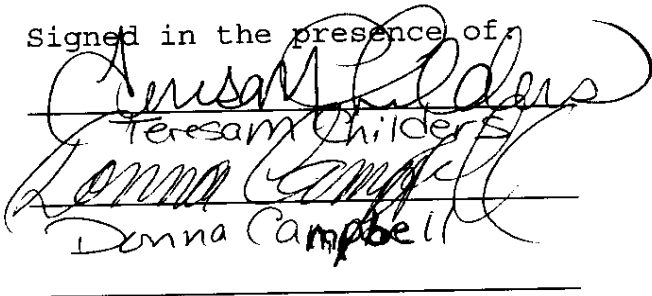 Signed in the presence of:
Teresa M Childers
Teresa M Childers
Donna Campbell
Donna Campbell